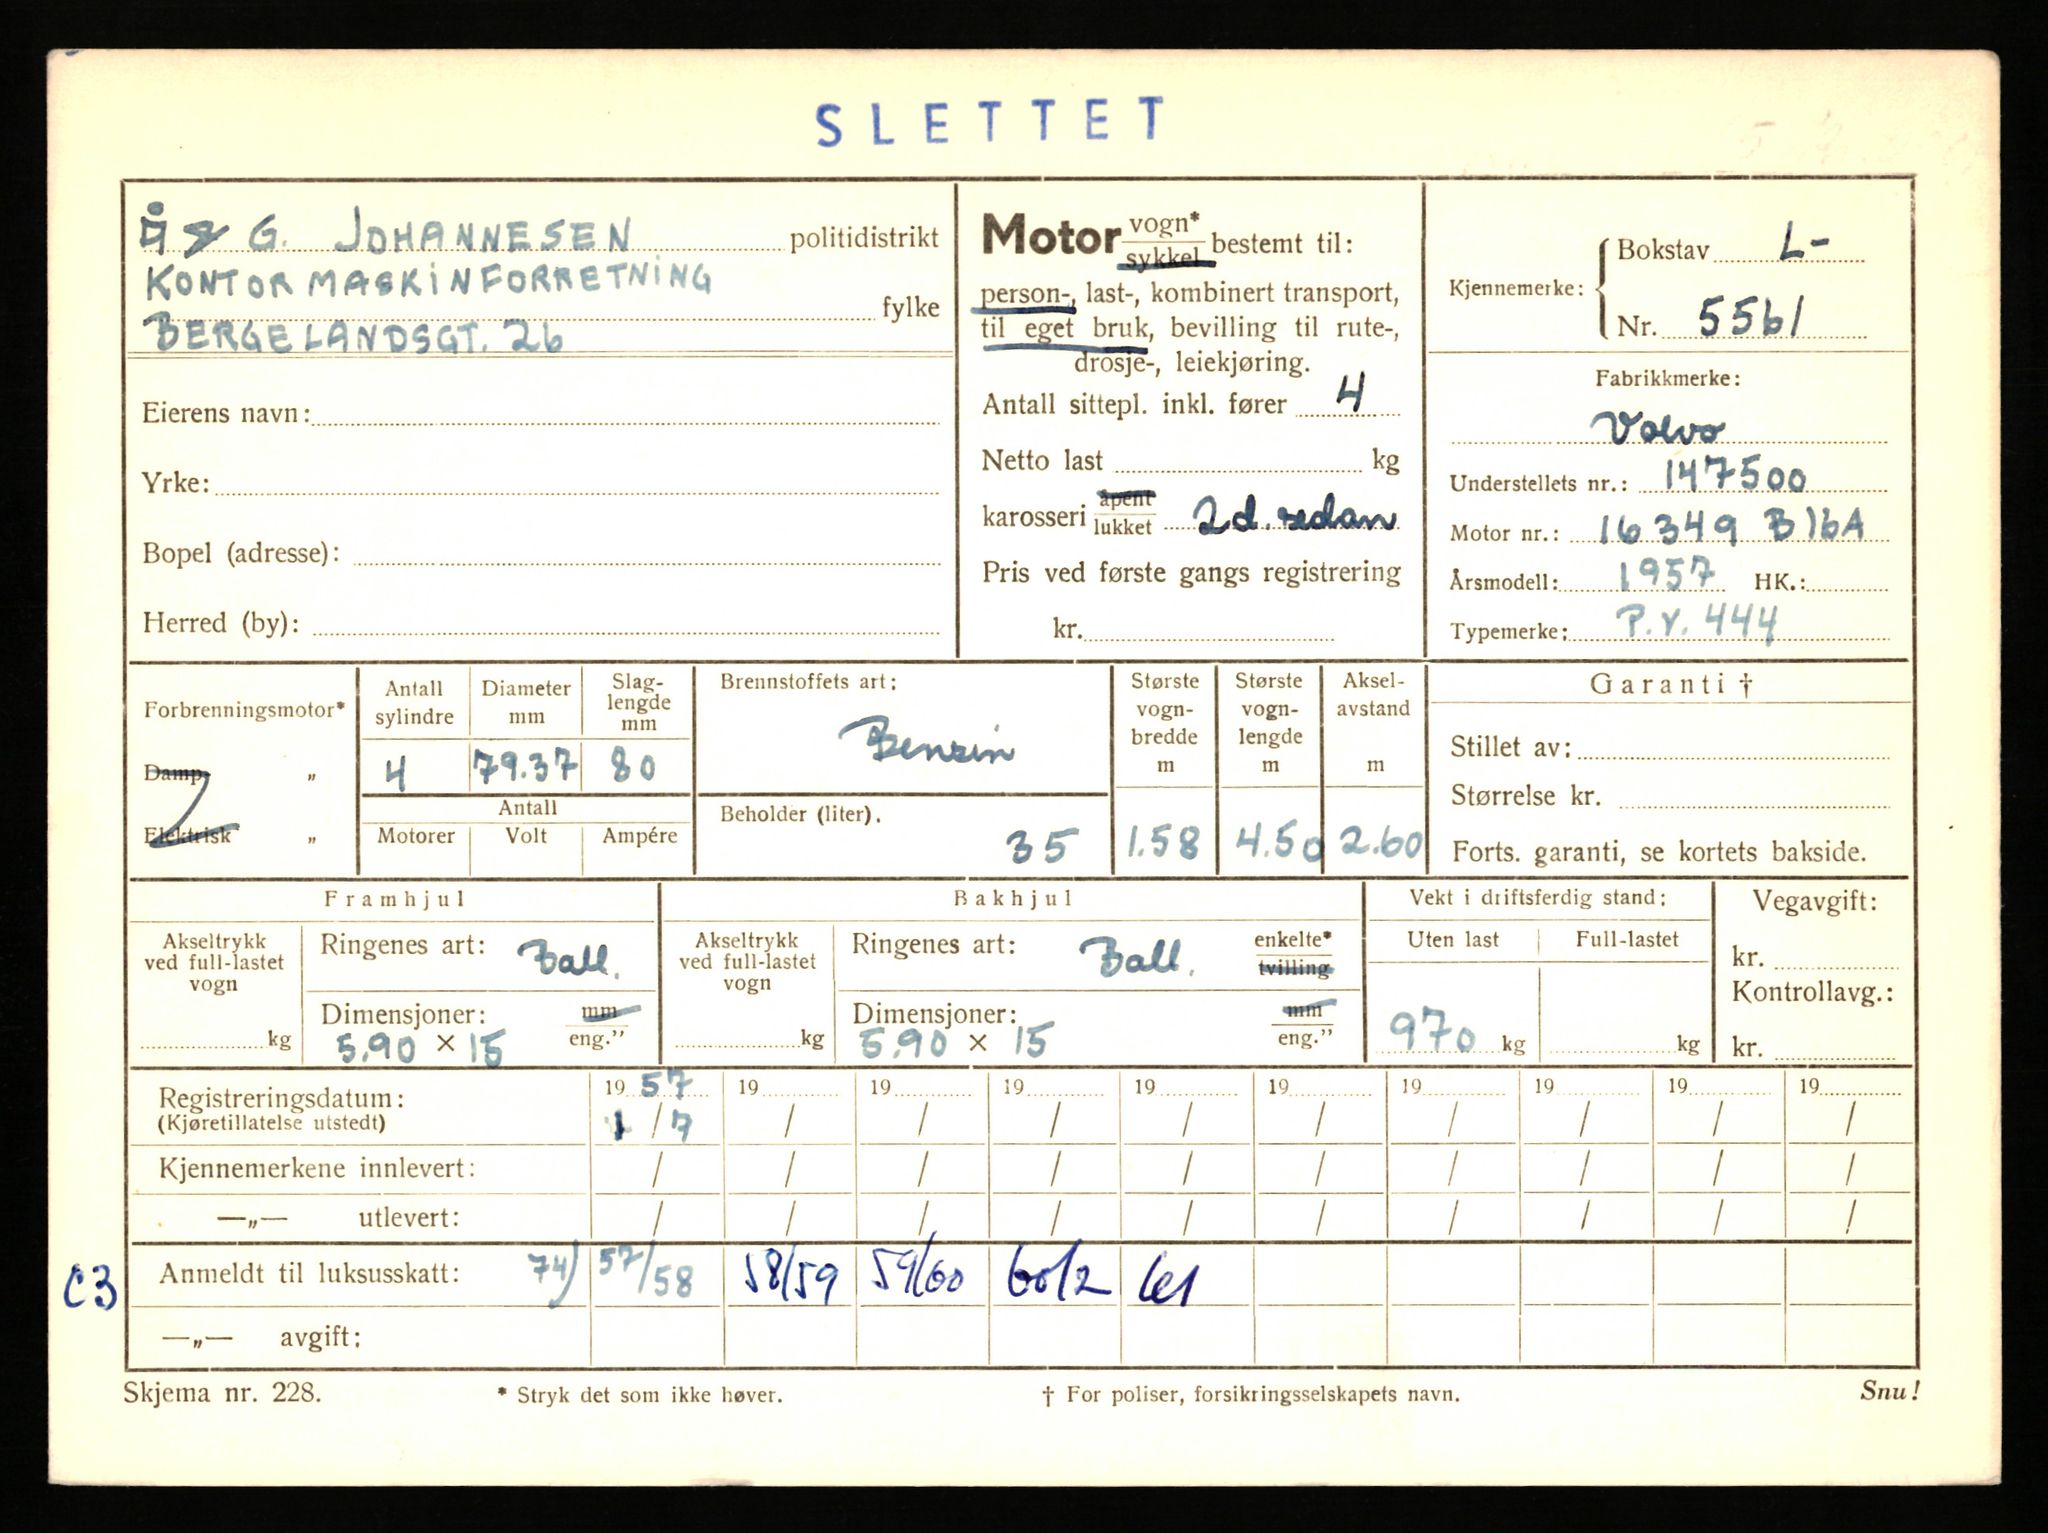 SLETTET
Å & G. JOHANNESEN politidistrikt
KONTORMASKINFORRETNING
fylke
BERGELANDSGT. 26
Eierens navn:
Yrke:
Bopel (adresse):
Herred (by):
Motor vogn* sykkel bestemt til:
person-, last-, kombinert transport,
til eget bruk, bevilling til rute-,
drosje-, leiekjøring.
Antall sittepl. inkl. fører 4
Netto last kg
karosseri åpent lukket 2d. sedan
Pris ved første gangs registrering
kr.
Kjennemerke: Bokstav L-
Nr. 5561
Fabrikkmerke:
Volvo
Understellets nr.: 147500
Motor nr.: 16349 B16A
Årsmodell: 1957 HK.:
Typemerke: P.V. 444
Forbrenningsmotor*
Damp „
Elektrisk „
Antall sylindre
Diameter mm
Slag-lengde mm
4 79.37 80
Antall
Motorer Volt Ampére
Brennstoffets art:
Benzin
Beholder (liter).
35
Største vogn-bredde m
1.58
Største vogn-lengde m
4.50
Aksel-avstand m
2.60
Garanti †
Stillet av:
Størrelse kr.
Forts. garanti, se kortets bakside.
Framhjul
Akseltrykk ved full-lastet vogn
kg
Ringenes art: Ball.
Dimensjoner: mm
5.90 × 15 eng.”
Bakhjul
Akseltrykk ved full-lastet vogn
kg
Ringenes art: Ball. enkelte* tvilling
Dimensjoner: mm
5.90 × 15 eng.”
Vekt i driftsferdig stand:
Uten last Full-lastet
970 kg kg
Vegavgift:
kr.
Kontrollavg.:
kr.
Registreringsdatum: 19 57 19 19 19 19 19 19 19 19 19
(Kjøretillatelse utstedt) 1/7 / / / / / / / / /
Kjennemerkene innlevert: / / / / / / / / / /
—„— utlevert: / / / / / / / / / /
C3 Anmeldt til luksusskatt: 74) 57/58 58/59 59/60 60/2 61
—„— avgift:
Skjema nr. 228. * Stryk det som ikke høver. † For poliser, forsikringsselskapets navn. Snu!